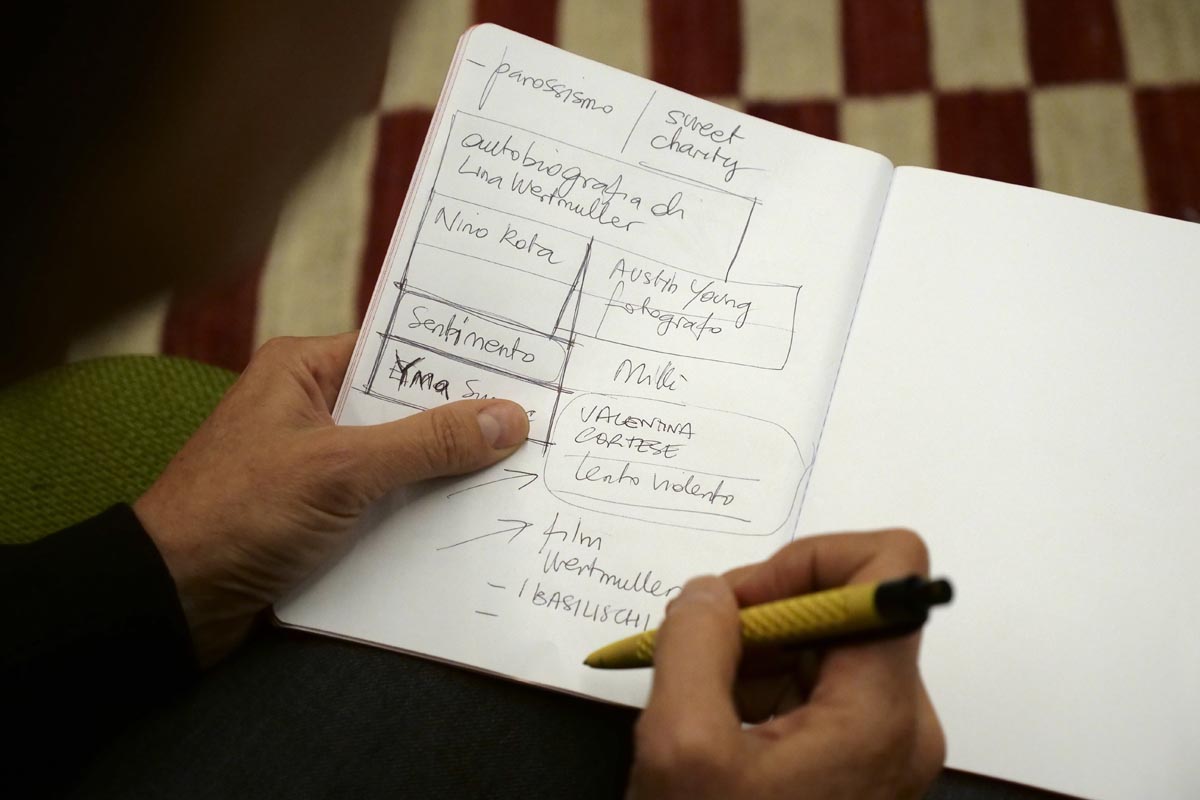 - parossismo
sweet
charity
autobiografia di
Lina Wertmuller
Nino Rota
Austin Young
fotografo
Sentimento
Milli
Yma
VALENTINA
CORTESE
lento violento
film
Wertmuller
- I BASILISCHI
-